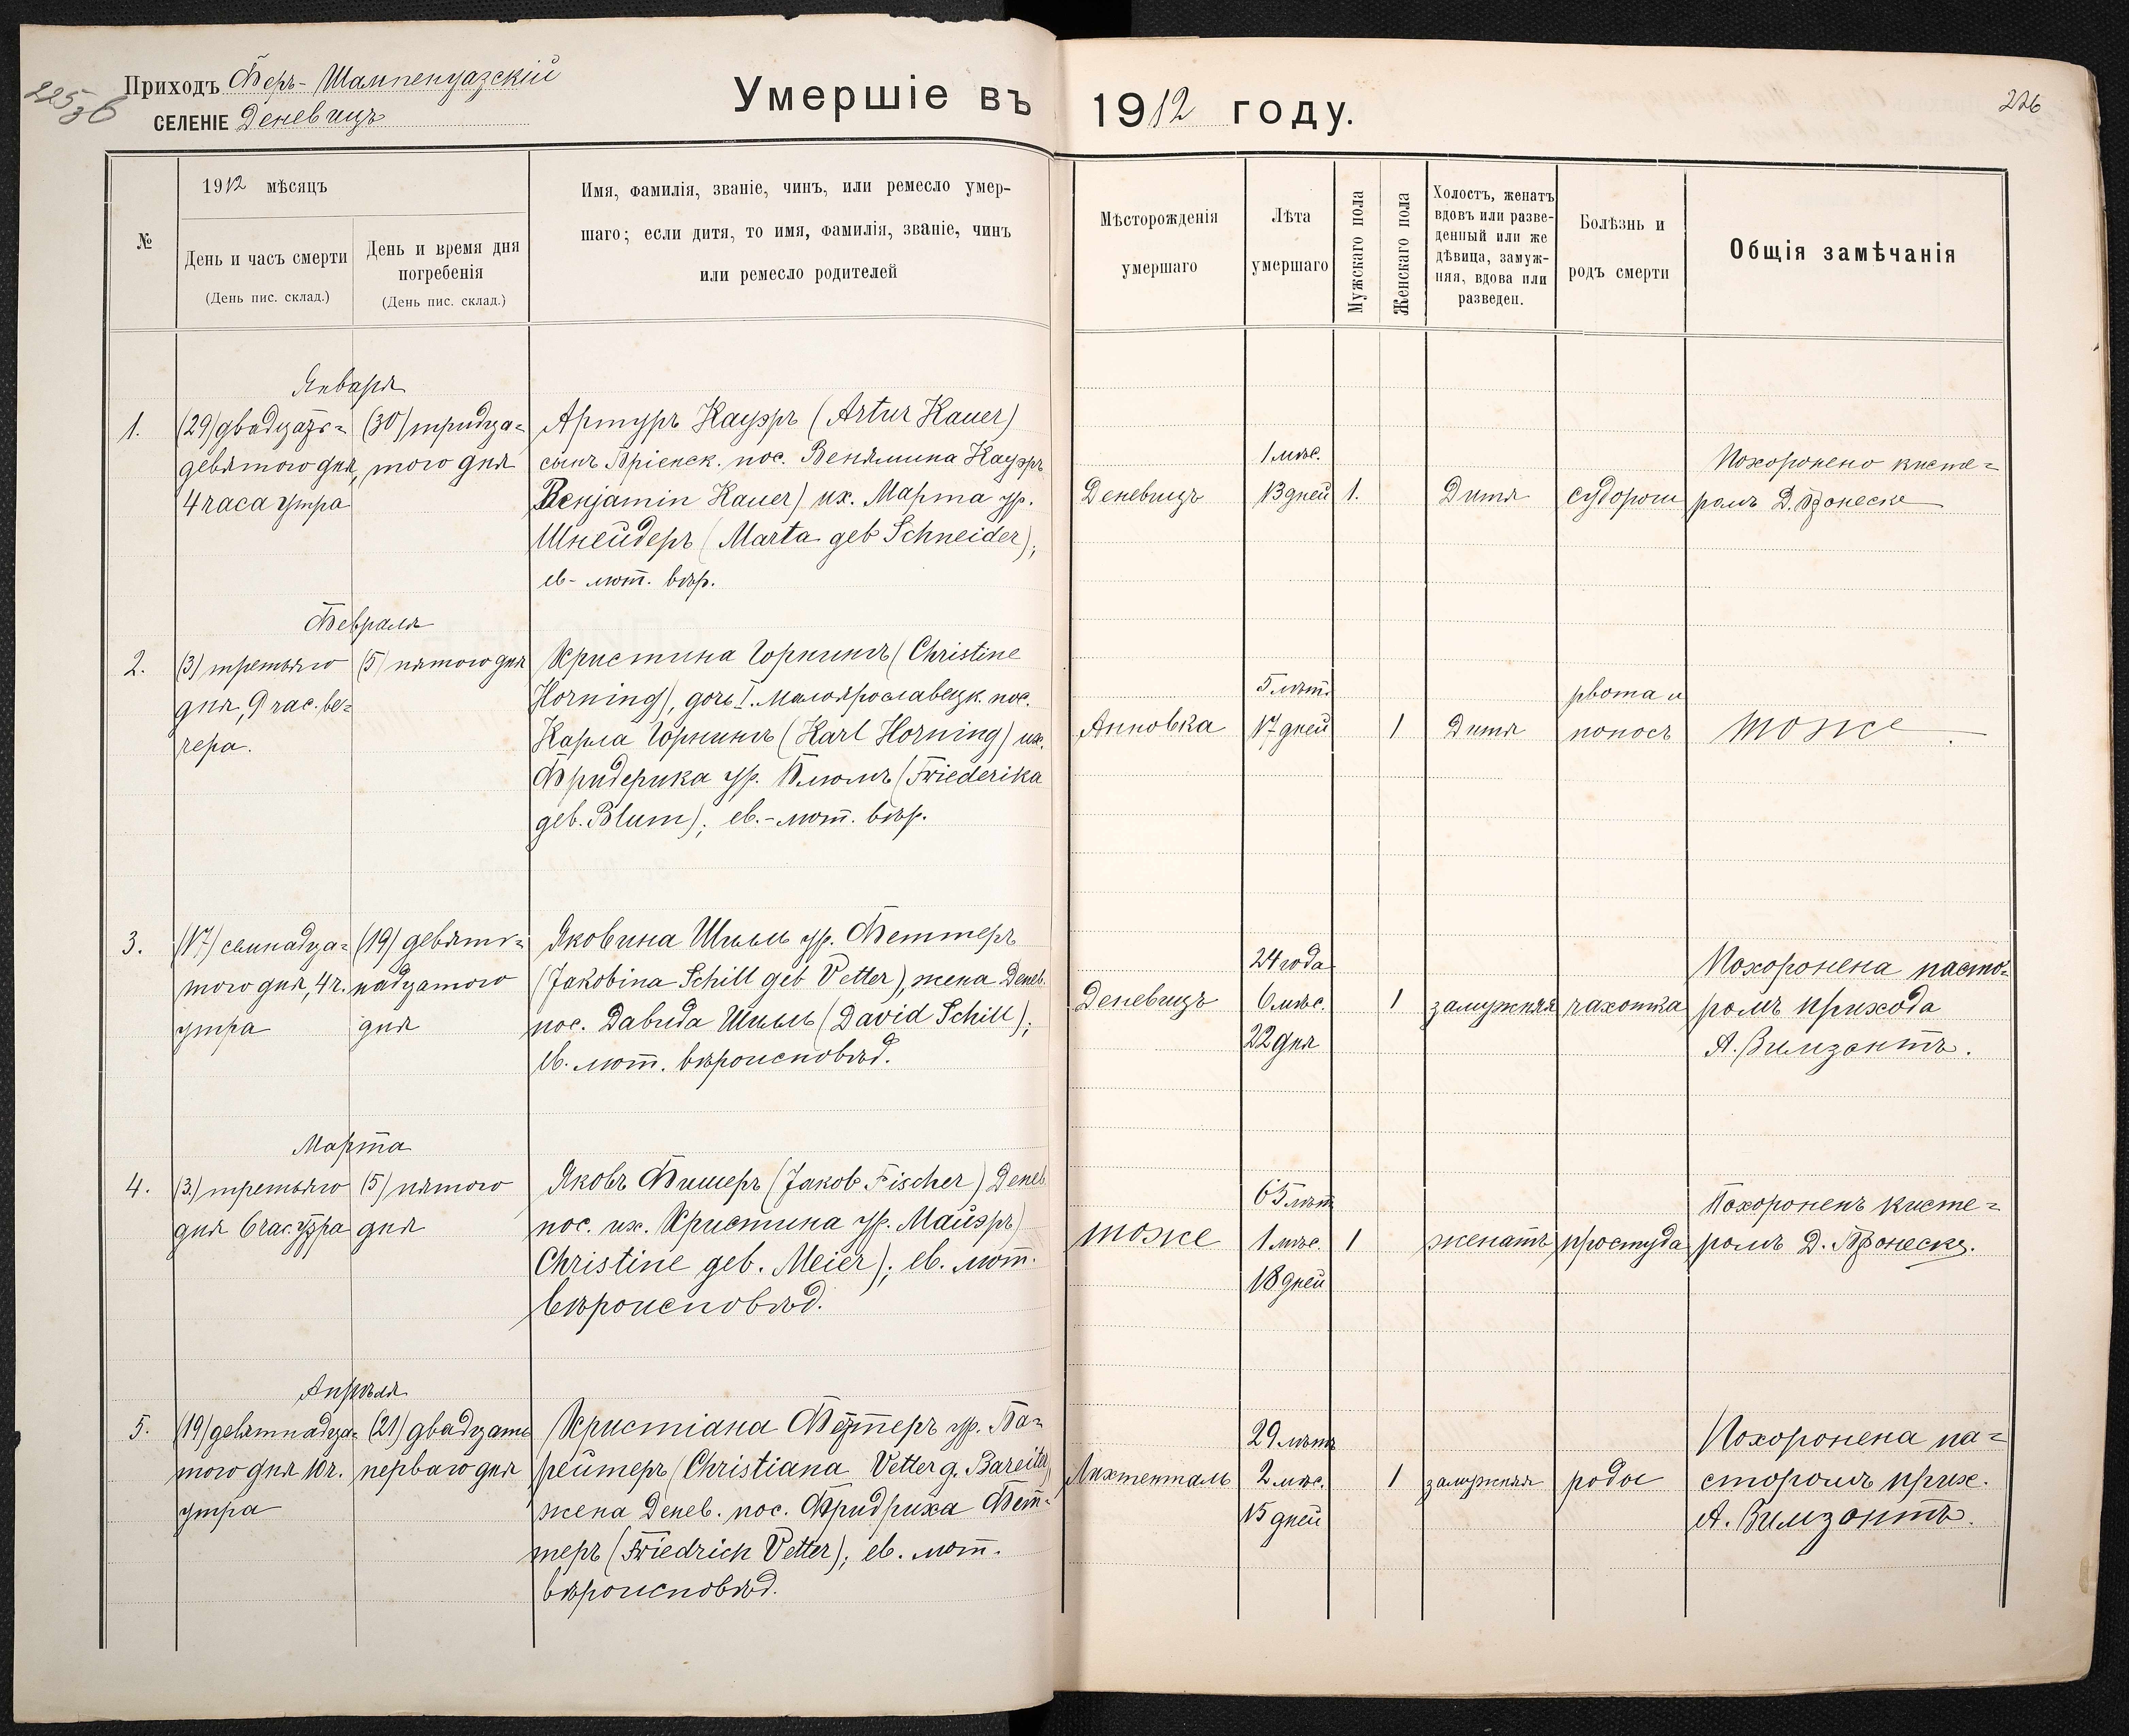 225 зв
Приходъ Феръ-Шампенуазскій
СЕЛЕНІЕ Деневицъ
Умершіе въ 1912 году.
226
№
1912 мѣсяцъ
День и часъ смерти
(День пис. склад.)
День и время дня
погребенія
(День пис. склад.)
Имя, фамилія, званіе, чинъ, или ремесло умер-
шаго; если дитя, то имя, фамилія, званіе, чинъ
или ремесло родителей
Мѣсторожденія
умершаго
Лѣта
умершаго
Мужскаго пола
Женскаго пола
Холостъ, женатъ
вдовъ или разве-
денный или же
дѣвица, замуж-
няя, вдова или
разведен.
Болѣзнь и
родъ смерти
Общія замѣчанія
Января
1.
(29) двадцать-
девятого дня,
4 часа утра
(30) тридца-
того дня
Артуръ Кауэръ (Artur Kauer)
сынъ Бріенск. пос. Веніамина Кауэръ
Benjamin Kauer) их. Марта ур.
Шнейдеръ (Marta geb Schneider);
ев- лют. вѣр.
Деневицъ
1 мѣс.
13 дней
1.
Дитя
судороги
Похоронено кисте-
ромъ Д. Фонеске
Февраля
2.
(3) третьяго
дня, 9 час. ве-
чера.
(5) пятого дня
Христина Горнингъ (Christine
Horning), дочь I. Малоярославецк. пос.
Карла Горнингъ (Karl Horning) их.
Фридерика ур. Блюмъ (Friederika
geb. Blum); ев.-лют. вѣр.
Анновка
5 лѣт.
17 дней
1
Дитя
рвота и
поносъ
тоже
3.
(17) семнадца-
того дня, 4 ч.
утра
(19) девят-
надцатого
дня
Яковина Шилль ур. Феттеръ
(Jakobina Schill geb Vetter), жена Денев.
пос. Давида Шилль (David Schill);
ев. лют. вѣроисповѣд.
Деневицъ
24 года
6 мѣс.
22 дня
1
замужняя
чахотка
Похоронена пасто-
ромъ прихода
А.
Марта
4.
(3.) третьяго
дня 6 час. утра
(5) пятого
дня
Яковъ Фишеръ (Jakob Fischer) Денев.
пос. их. Христина ур. Майэръ)
Christine geb. Meier); ев. лют.
вѣроисповѣд.
тоже
65 лѣт
1 мѣс.
18 дней
1
женатъ
простуда
Похороненъ кисте-
ромъ Д. Фонеске.
Апрѣля
5.
(19) девятнадца-
того дня 10 ч.
утра
(21) двадцать
перваго дня
Христіана Феттеръ ур. Ба-
рейтеръ (Christiana Vetter g. Bareiter)
жена Денев. пос. Фридриха Фет-
теръ (Friedrich Vetter); ев. лют.
вѣроисповѣд.
Лихтенталь
29 лѣтъ
2 мѣс.
15 дней
1
замужняя
роды
Похоронена па-
сторомъ прих.
А.